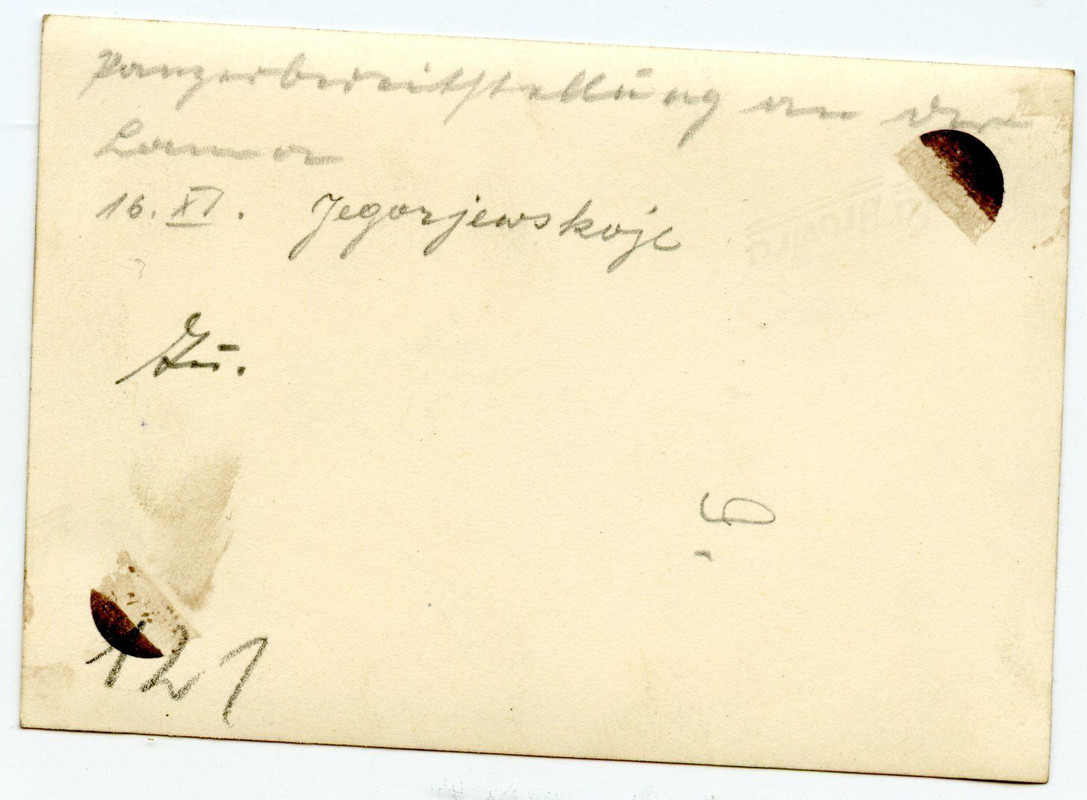 Panzerbereitstellung an der
Lama
16. XI. Jegorjewskoje
Zu.
6.
121